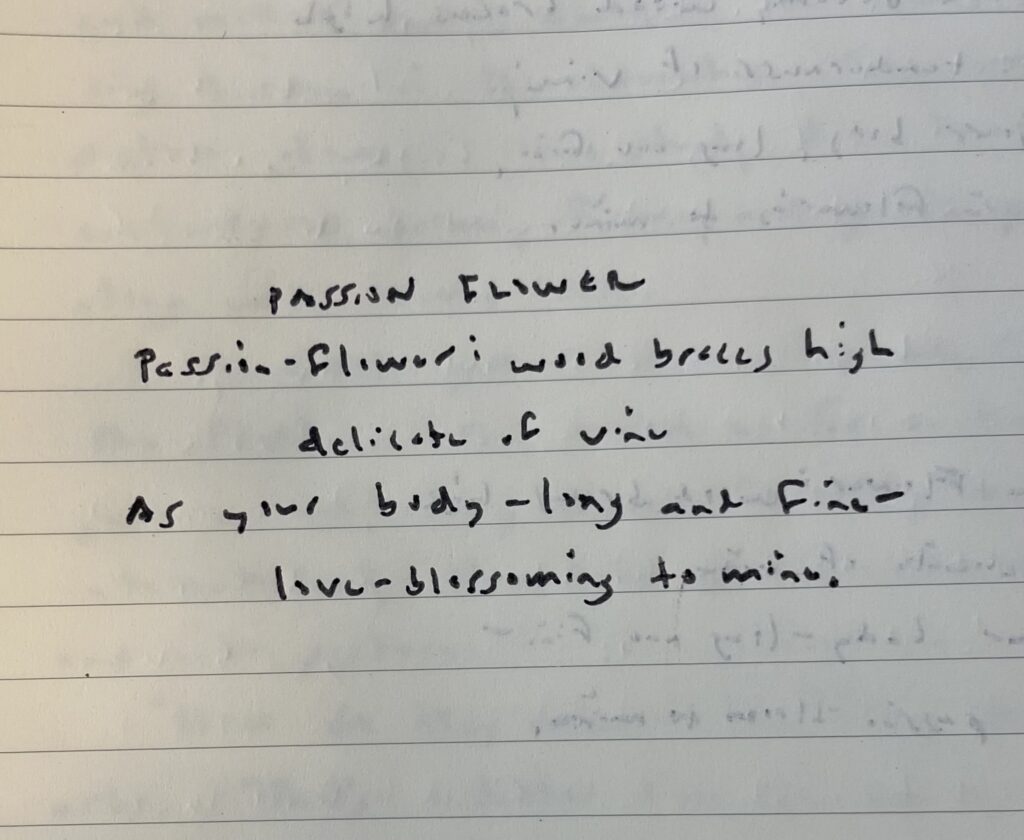 PASSION FLOWER
Passion-Flower: wood braces high
delicate of vine
As your body - long and Fine -
love-blossoming to mine.